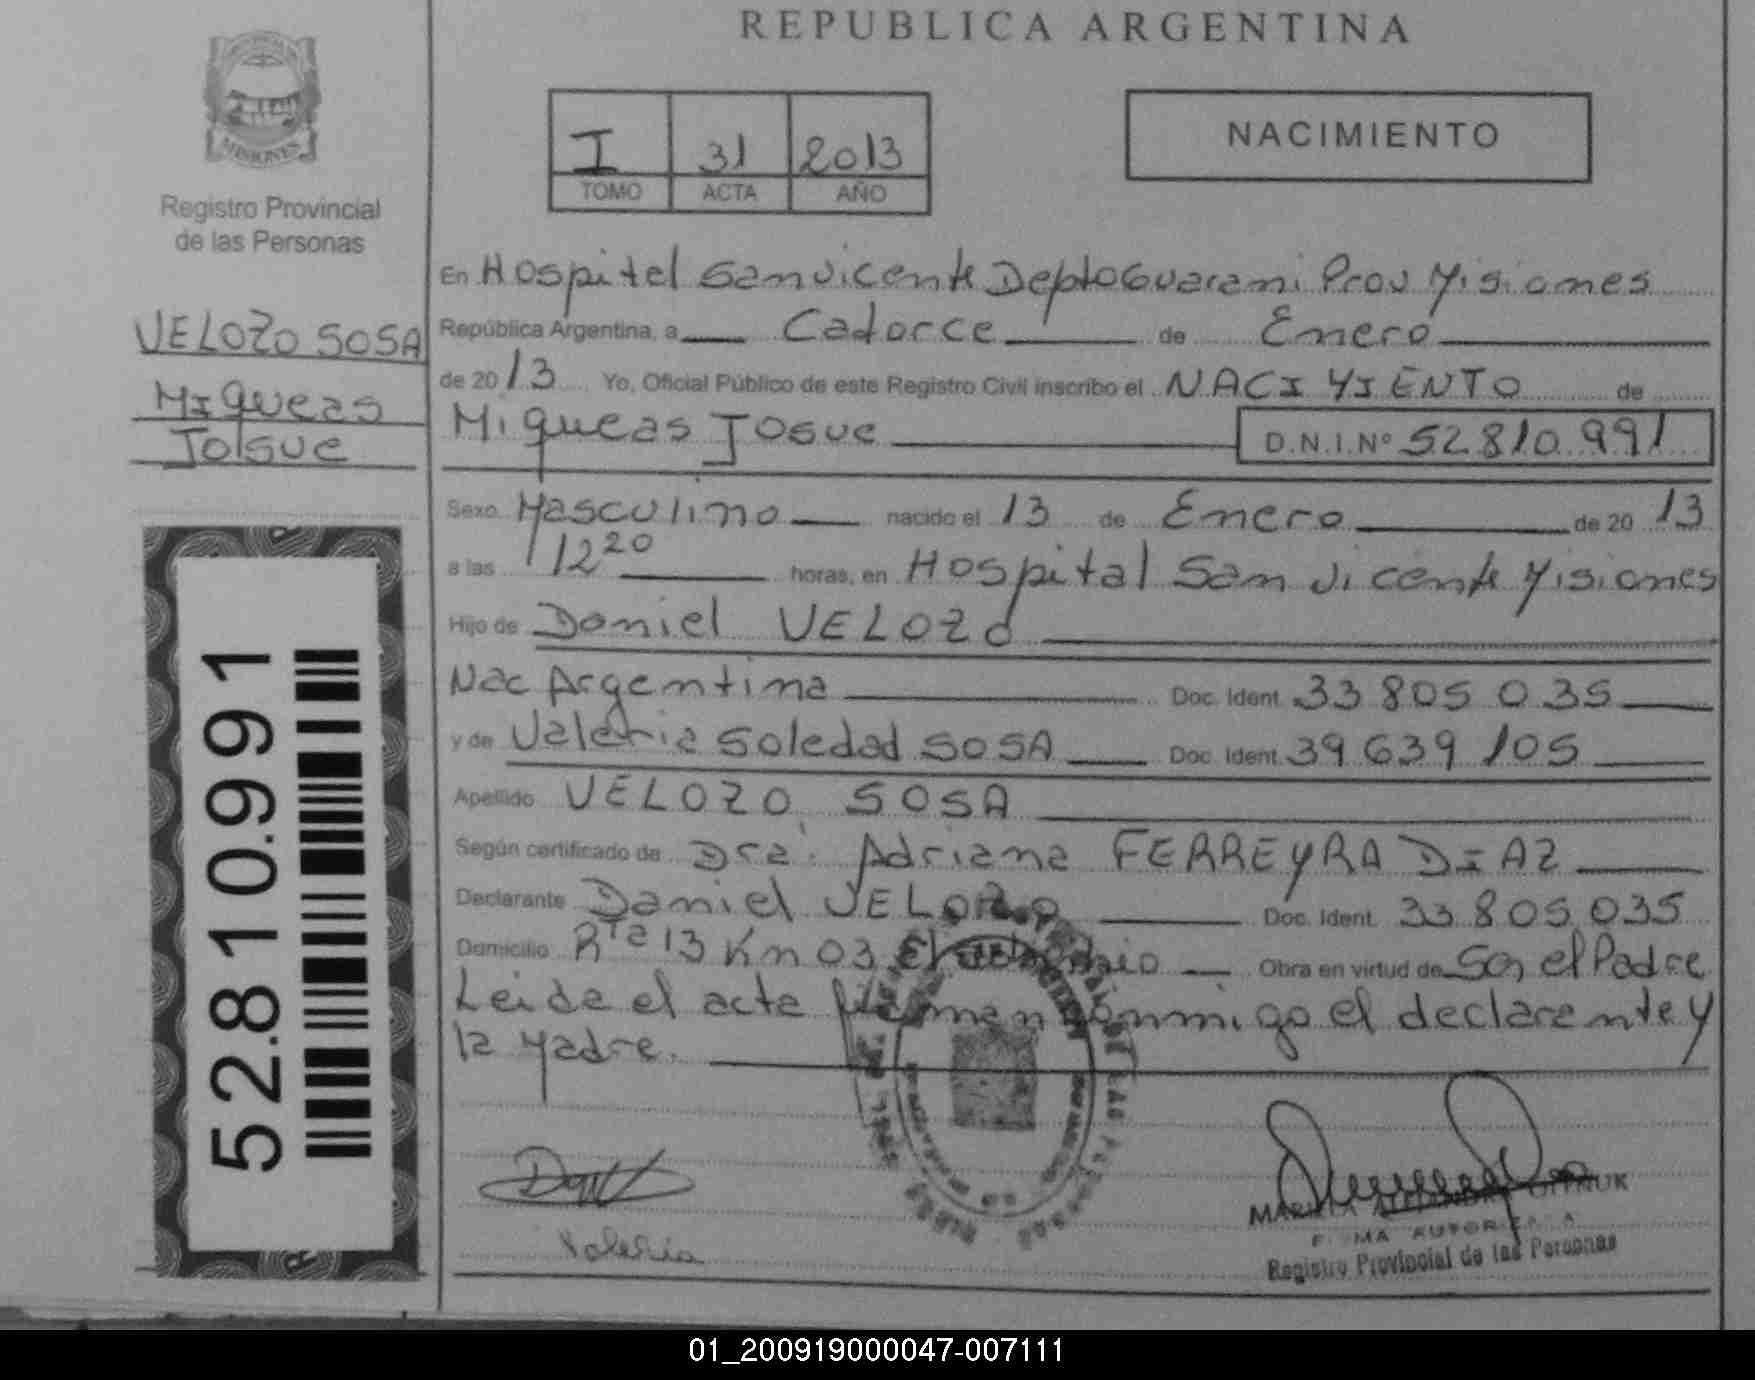 REPUBLICA ARGENTINA
MISIONES
Registro Provincial
de las Personas
VELOZO SOSA
MIqueas
Josue
52.810.991
I 31 2013
TOMO ACTA AÑO
NACIMIENTO
En Hospitel San vicente Depto Guarani Prov Misiones
República Argentina, a Catorce de Enero
de 2013 Yo, Oficial Público de este Registro Civil inscribo el NACIMIENTO de
Miqueas Josue D.N.I.Nº 52.810.991
Sexo Masculino nacido el 13 de Enero de 2013
a las 12 20 horas, en Hospital San vicente Misiones
Hijo de Daniel VELOZO
Nac Argentina Doc. Ident. 33 805 035
y de Valeria Soledad SOSA Doc. Ident. 39 639 105
Apellido VELOZO SOSA
Según certificado de Dra. Adriana FERREYRA DIAZ
Declarante Daniel VELOZO Doc. Ident. 33.805.035
Domicilio Rta 13 Km 03 Obra en virtud de Ser el Padre
Leida el acta firman conmigo el declarante y
la Madre.
Valeria
FIRMA AUTORIZADA
Registro Provincial de las Personas
01_200919000047-007111